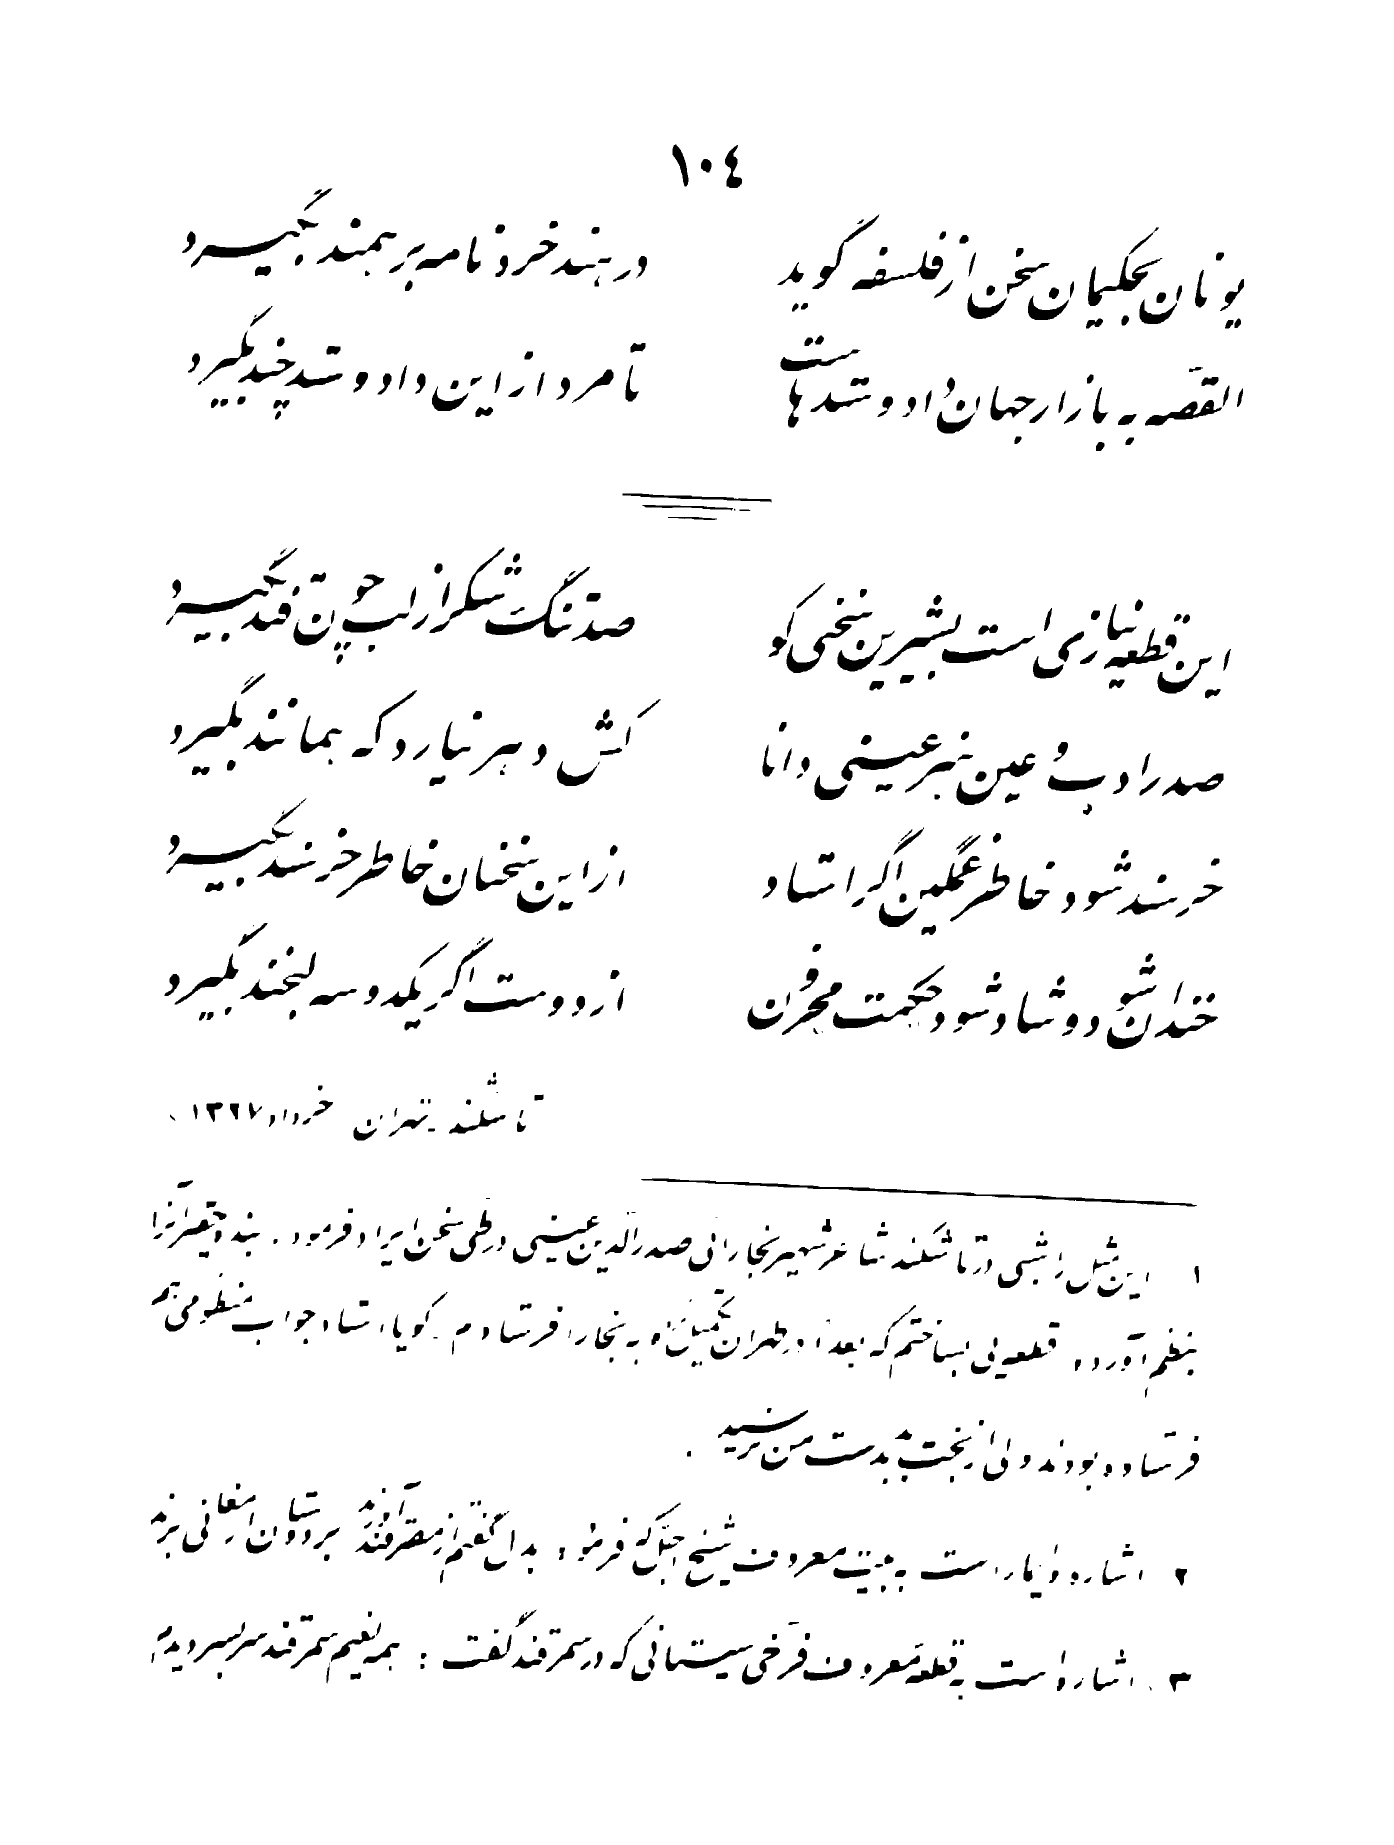 ١٠٤
یونان بحکیمان سخن از فلسفه گوید در هند خرد نامه برهمند بگیرد
القصّه به بازار جهان داد و ستدهاست تا مرد از این داد و ستد چند بگیرد
این قطعه نیازی است بشیرین سخنی کو صد تنگ شکر از لب چون قند بگیرد
صدر ادب و عین هنر عینی دانا کش دهر نیارد که بمانند بگیرد
خرسند شود خاطر غمگین اگر استاد از این سخنان خاطر خرسند بگیرد
خندان شود و شاد شود حکمت محزون از دوست اگر یکدو سه لبخند بگیرد
تاشکند - تهران خرداد ۱۳۲۷
۱ این مثل را شبی در تاشکند شاعر شهیر بخارائی صدرالدین عینی در طی سخن ایراد فرمود. بنده حقیر آنرا
بنظم آورده قطعه‌یی بساختم که بعداً در طهران تکمیل شده به بخارا فرستادم. گویا استاد جواب منظومی هم
فرستاده بودند ولی از بخت بد بدست من نرسید.
۲ اشاره و ایما است به بیت معروف شیخ اجل که فرموده بدل گفتم از مصر قند آورند بر دوستان ارمغانی برند
۳ اشاره است به قطعه معروف فرّخی سیستانی که در سمرقند گفت : همه نعیم سمرقند سربسر دیدم